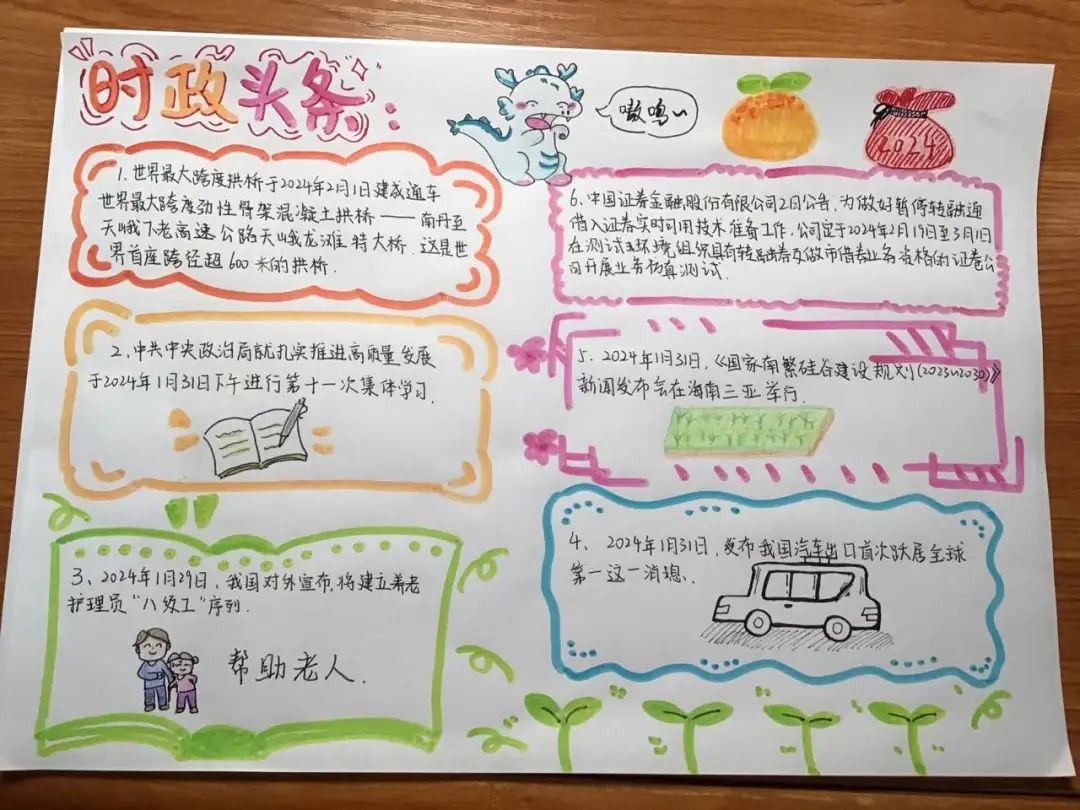 时政头条:
嗷鸣~
2024
1. 世界最大跨度拱桥于2024年2月1日建成通车
世界最大跨度劲性骨架混凝土拱桥——南丹至
天峨下老高速公路天峨龙滩特大桥. 这是世
界首座跨径超600米的拱桥.
2、中共中央政治局就扎实推进高质量发展
于2024年1月31日下午进行第十一次集体学习.
3、2024年1月29日, 我国对外宣布, 将建立养老
护理员“八级工”序列.
帮助老人.
4、2024年1月31日, 发布我国汽车出口首次跃居全球
第一这一消息.
5、2024年1月31日,《国家南繁硅谷建设规划(2023~2030)》
新闻发布会在海南三亚举行.
6、中国证券金融股份有限公司2月公告, 为做好暂停转融通
借入证券实时可用技术准备工作, 公司定于2024年2月19日至3月1日
在测试环境组织具有转融券及做市借券业务资格的证券公
司开展业务仿真测试.